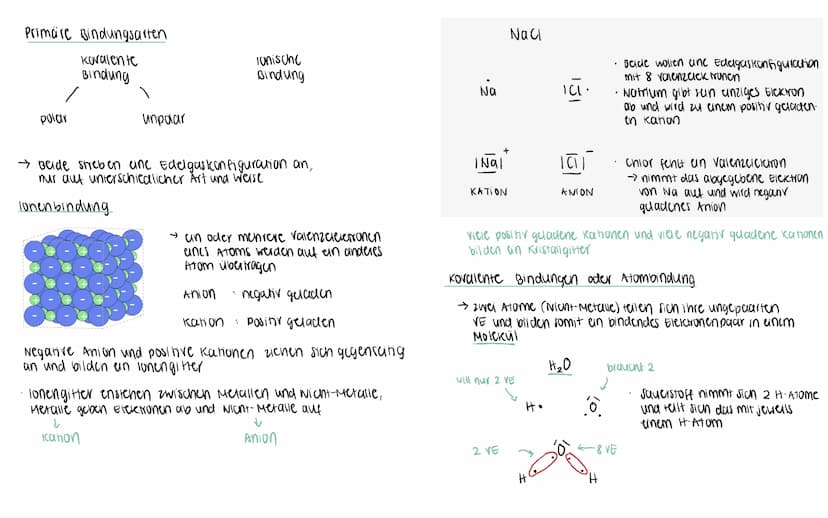 Primäre Bindungsarten
kovalente
Bindung
ionische
Bindung
polar
unpolar
→ Beide streben eine Edelgaskonfiguration an,
nur auf unterschiedlicher Art und Weise
Ionenbindung
→ ein oder mehrere Valenzelektronen
eines Atoms werden auf ein anderes
Atom übertragen
Anion : negativ geladen
Kation : Positiv geladen
Negative Anion und positive Kationen ziehen sich gegenseitig
an und bilden ein Ionengitter
· Ionengitter enstehen zwischen Metallen und Nicht-Metalle,
Metalle geben Elektronen ab und Nicht-Metalle auf
Kation
Anion
NaCl
Na
Cl
· Beide wollen eine Edelgaskonfiguration
mit 8 Valenzelektronen
· Natrium gibt sein einziges Elektron
ab und wird zu einem positiv geladen-
en Kation
|Na|+
|Cl|−
KATION
ANION
· Chlor fehlt ein Valenzelektron
→ nimmt das abgegebene Elektron
von Na auf und wird negativ
geladenes Anion
viele positiv geladene Kationen und viele negativ geladene Kationen
bilden ein Kristallgitter
Kovalente Bindungen oder Atombindung
→ zwei Atome (Nicht-Metalle) teilen sich ihre ungepaarten
VE und bilden somit ein bindendes Elektronenpaar in einem
Molekül
H₂O
will nur 2 VE
braucht 2
H·
O
· Sauerstoff nimmt sich 2 H-Atome
und teilt sich das mit jeweils
einem H-Atom
2 VE
O
8 VE
H
H